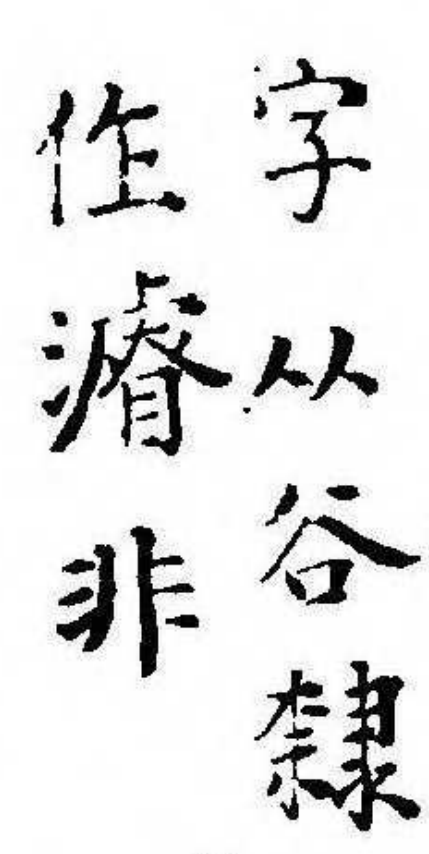 字从谷隸
作濬非